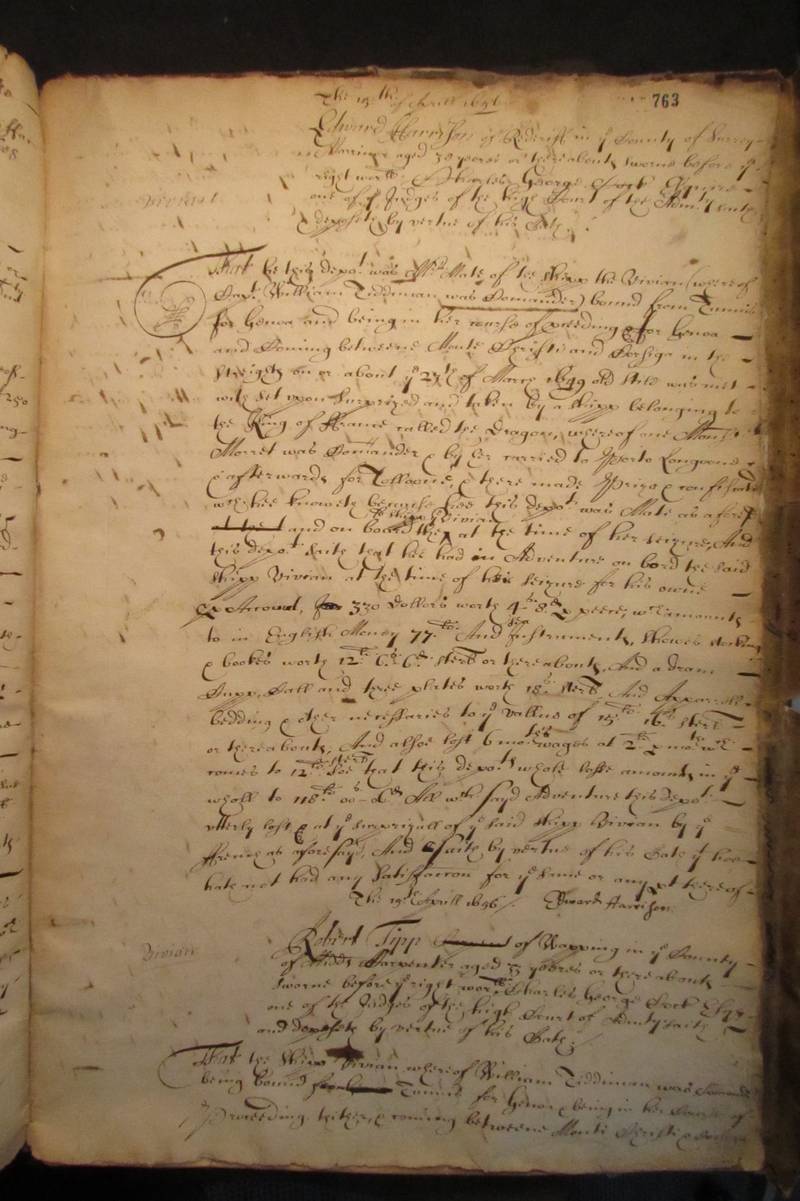 The 19th of Aprill 1656
763
Edward Harrison of Redriff in ye County of Surrey
Marriner aged 30 yeares or thereabouts sworne before ye
right worll: Charles George Cock Esquire
one of ye Judges of the high Court of the Admlty saith
deposeth by vertue of his Oath.
Vivian
That he this depot was Mate of the Shipp the Vivian (whereof
Capt William Tiddiman was Comander) bound from Tunnis
for Genoa and being in her course of proceeding for Genoa
and Coming betweene Monte Christi and Corsiga in the
Streights on or about ye 23th of March 1649 old stile was mett
with set upon Surprized and taken by a shipp belonging to
the King of France called the Dragon, whereof one
Morret was Comander & by her carried to Porto Longone
& afterwards for Tollone, & there made Prize & confiscated
wch hee knoweth because hee this depot was Mate as aforesd
and on board the shipp Vivian at the time of her seizure, And
this depot saith that hee had in Adventure on bord the said
Shipp Vivian at the time of her seizure for his owne
Account, 330 Dollers worth 4s 8d p peece, wch amounts
to in English Money 77li. And Instruments,
& bookes worth 12li 6s 6d sterl or thereabouts, And a
and three worth 18s sterl, And Apparrell
bedding & other necessaries to ye vallue of 15li sterl
or thereabouts, And alsoe lost 6 moneths wages at 2li
comes to 12li Soe that this depots whole losse amounts in ye
whole to 118li 00s All wch sayd Adventure this depot
utterly lost at ye surprizall of ye said Shipp Vivian by ye
ffrench as aforesayd, And saith by vertue of his Oath yt hee
hath not had any Satisfaccon for ye same or any pt thereof
The 19th Aprill 1656. Edward Harrison
Vivian
Robert Tipp of Wapping in ye County
of Middx Carpenter aged yeares or thereabouts
sworne before ye right worll Charles George Cock Esqr
one of the Judges of the high Court of Admlty saith
and deposeth by vertue of his Oath.
That the Shipp Vivian whereof William Tiddiman was Comander
being bound Tunnis for Genoa & being in her Course of
Proceeding thither, & coming betweene Monte Christi &